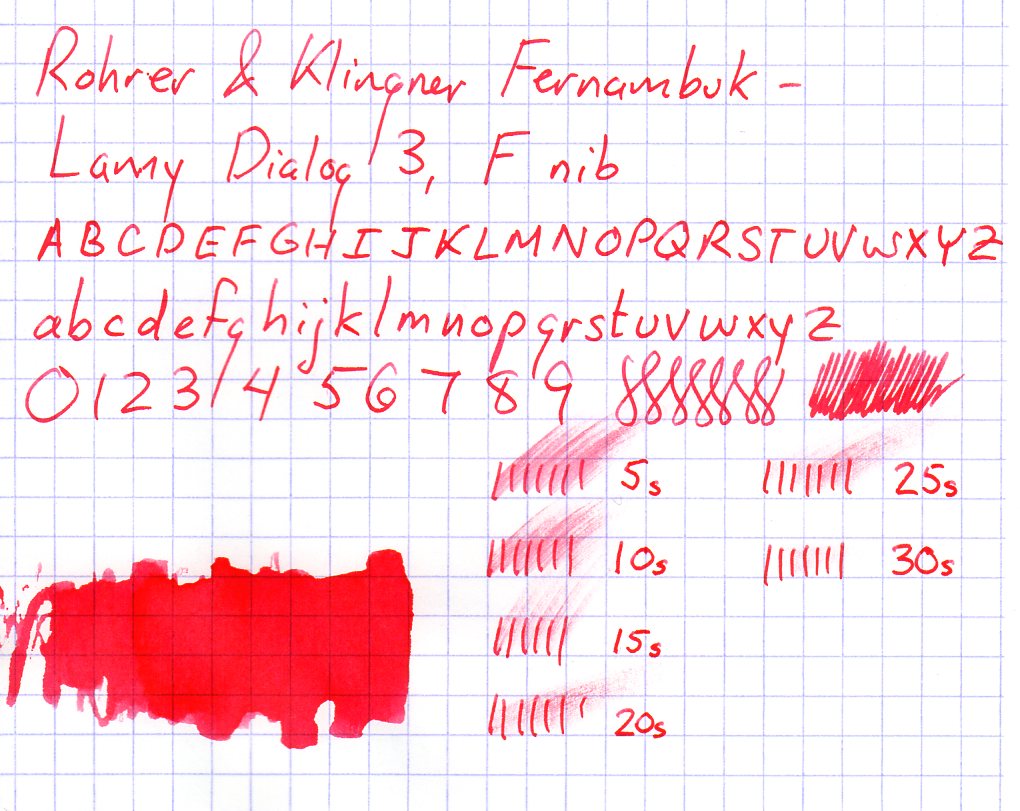 Rohrer & Klingner Fernambuk -
Lamy Dialog 3, F nib
ABCDEFGHIJKLMNOPQRSTUVWXYZ
abcdefghijklmnopqrstuvwxyz
0123456789
5s
25s
10s
30s
15s
20s